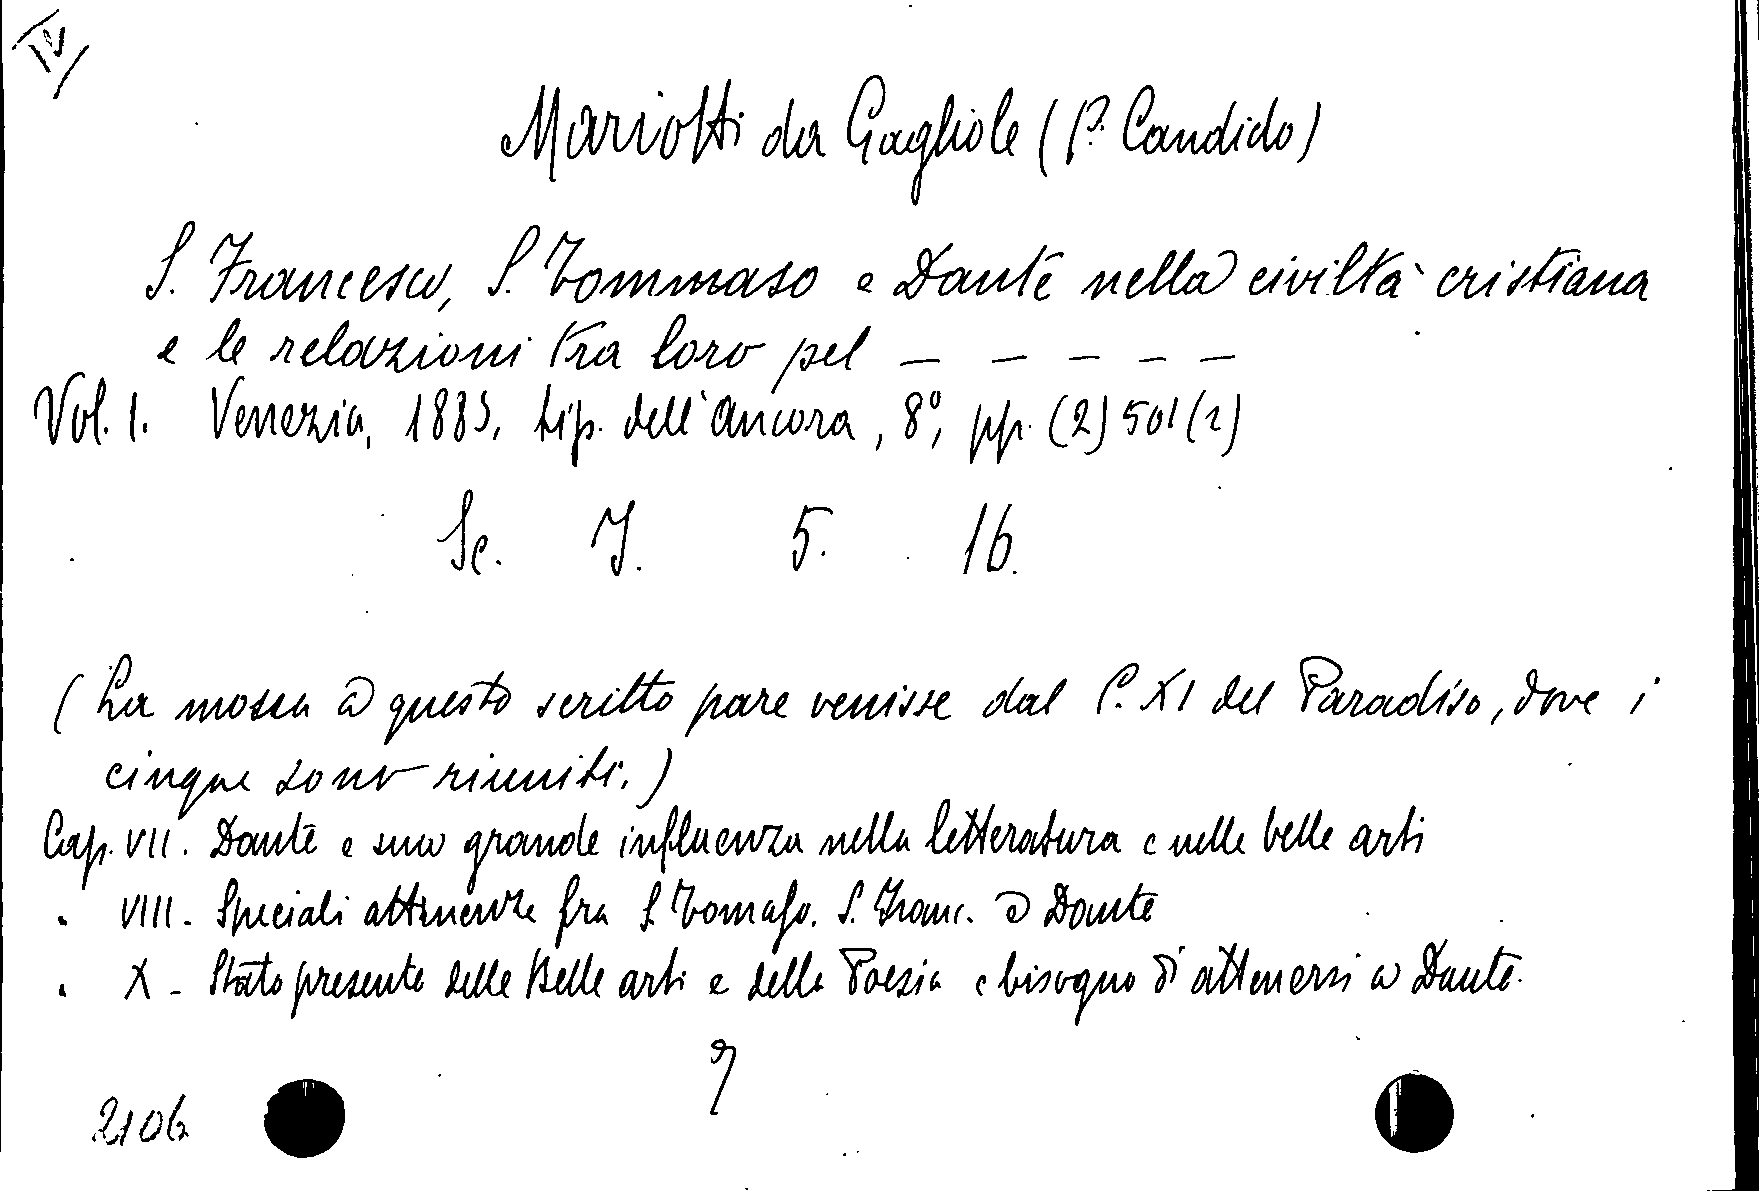 IV
Mariotti da Gagliole (P. Candido)
S. Francesco, S. Tommaso e Dante nella civiltà cristiana
e le relazioni tra loro pel _ _ _ _ _
Vol. I. Venezia, 1883, tip. dell'Ancora, 8°, pp. (2) 501 (2)
Sc. I. 5. 16.
(La mossa a questo scritto pare venisse dal C. XI del Paradiso, dove i
cinque sono riuniti.)
Cap. VII. Dante e sua grande influenza nella letteratura e nelle belle arti
" VIII - Speciali attinenze fra S. Tomaso. S. Franc. e Dante
" X - Stato presente delle Belle arti e della Poesia e bisogno di attenersi a Dante.
2106